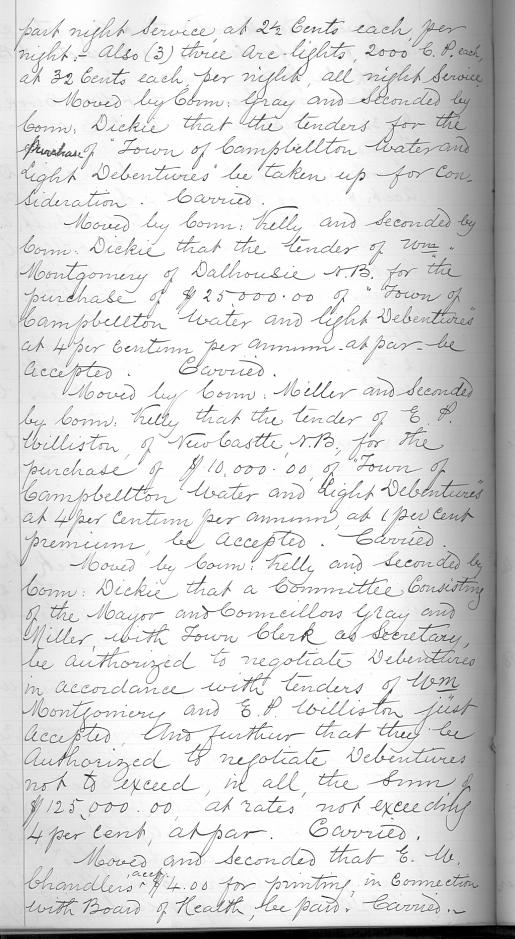 part night Service, at 24 Cents each, per
night:- Also (3) three Arc lights, 2000 C. P. each,
at 32 Cents each per night, all night Service.
Moved by Coun: Gray and Seconded by
Coun: Dickie that the tenders for the
Purchase of "Town of Campbellton Water and
Light Debentures" be taken up for Con-
sideration. Carried.
Moved by Coun: Kelly and Seconded by
Coun: Dickie that the tender of Wm.
Montgomery of Dalhousie N.B. for the
purchase of $25000.00 of "Town of
Campbellton Water and light Debentures"
at 4 per Centum per annum - at par - be
Accepted. Carried.
Moved by Coun: Miller and Seconded
by Coun: Kelly that the tender of E. P.
Williston, of NewCastle, N.B, for the
purchase of $10,000.00, of "Town of
Campbellton Water and Light Debentures"
at 4 per centum per annum, at 1 per cent
premium, be Accepted. Carried.
Moved by Coun: Kelly and Seconded by
Coun: Dickie that a Committee Consisting
of the Mayor and Councillors Gray and
Miller, with Town Clerk as Secretary,
be authorized to negotiate Debentures
in accordance with tenders of Wm
Montgomery and E. P. Williston just
Accepted. And further that they be
Authorized to negotiate Debentures
not to exceed, in all, the Sum of
$125,000.00, at rates not exceeding
4 per cent, at par. Carried.
Moved and Seconded that E. W.
Chandlers acct. $4.00 for printing, in Connection
with Board of Health, be paid. Carried.-